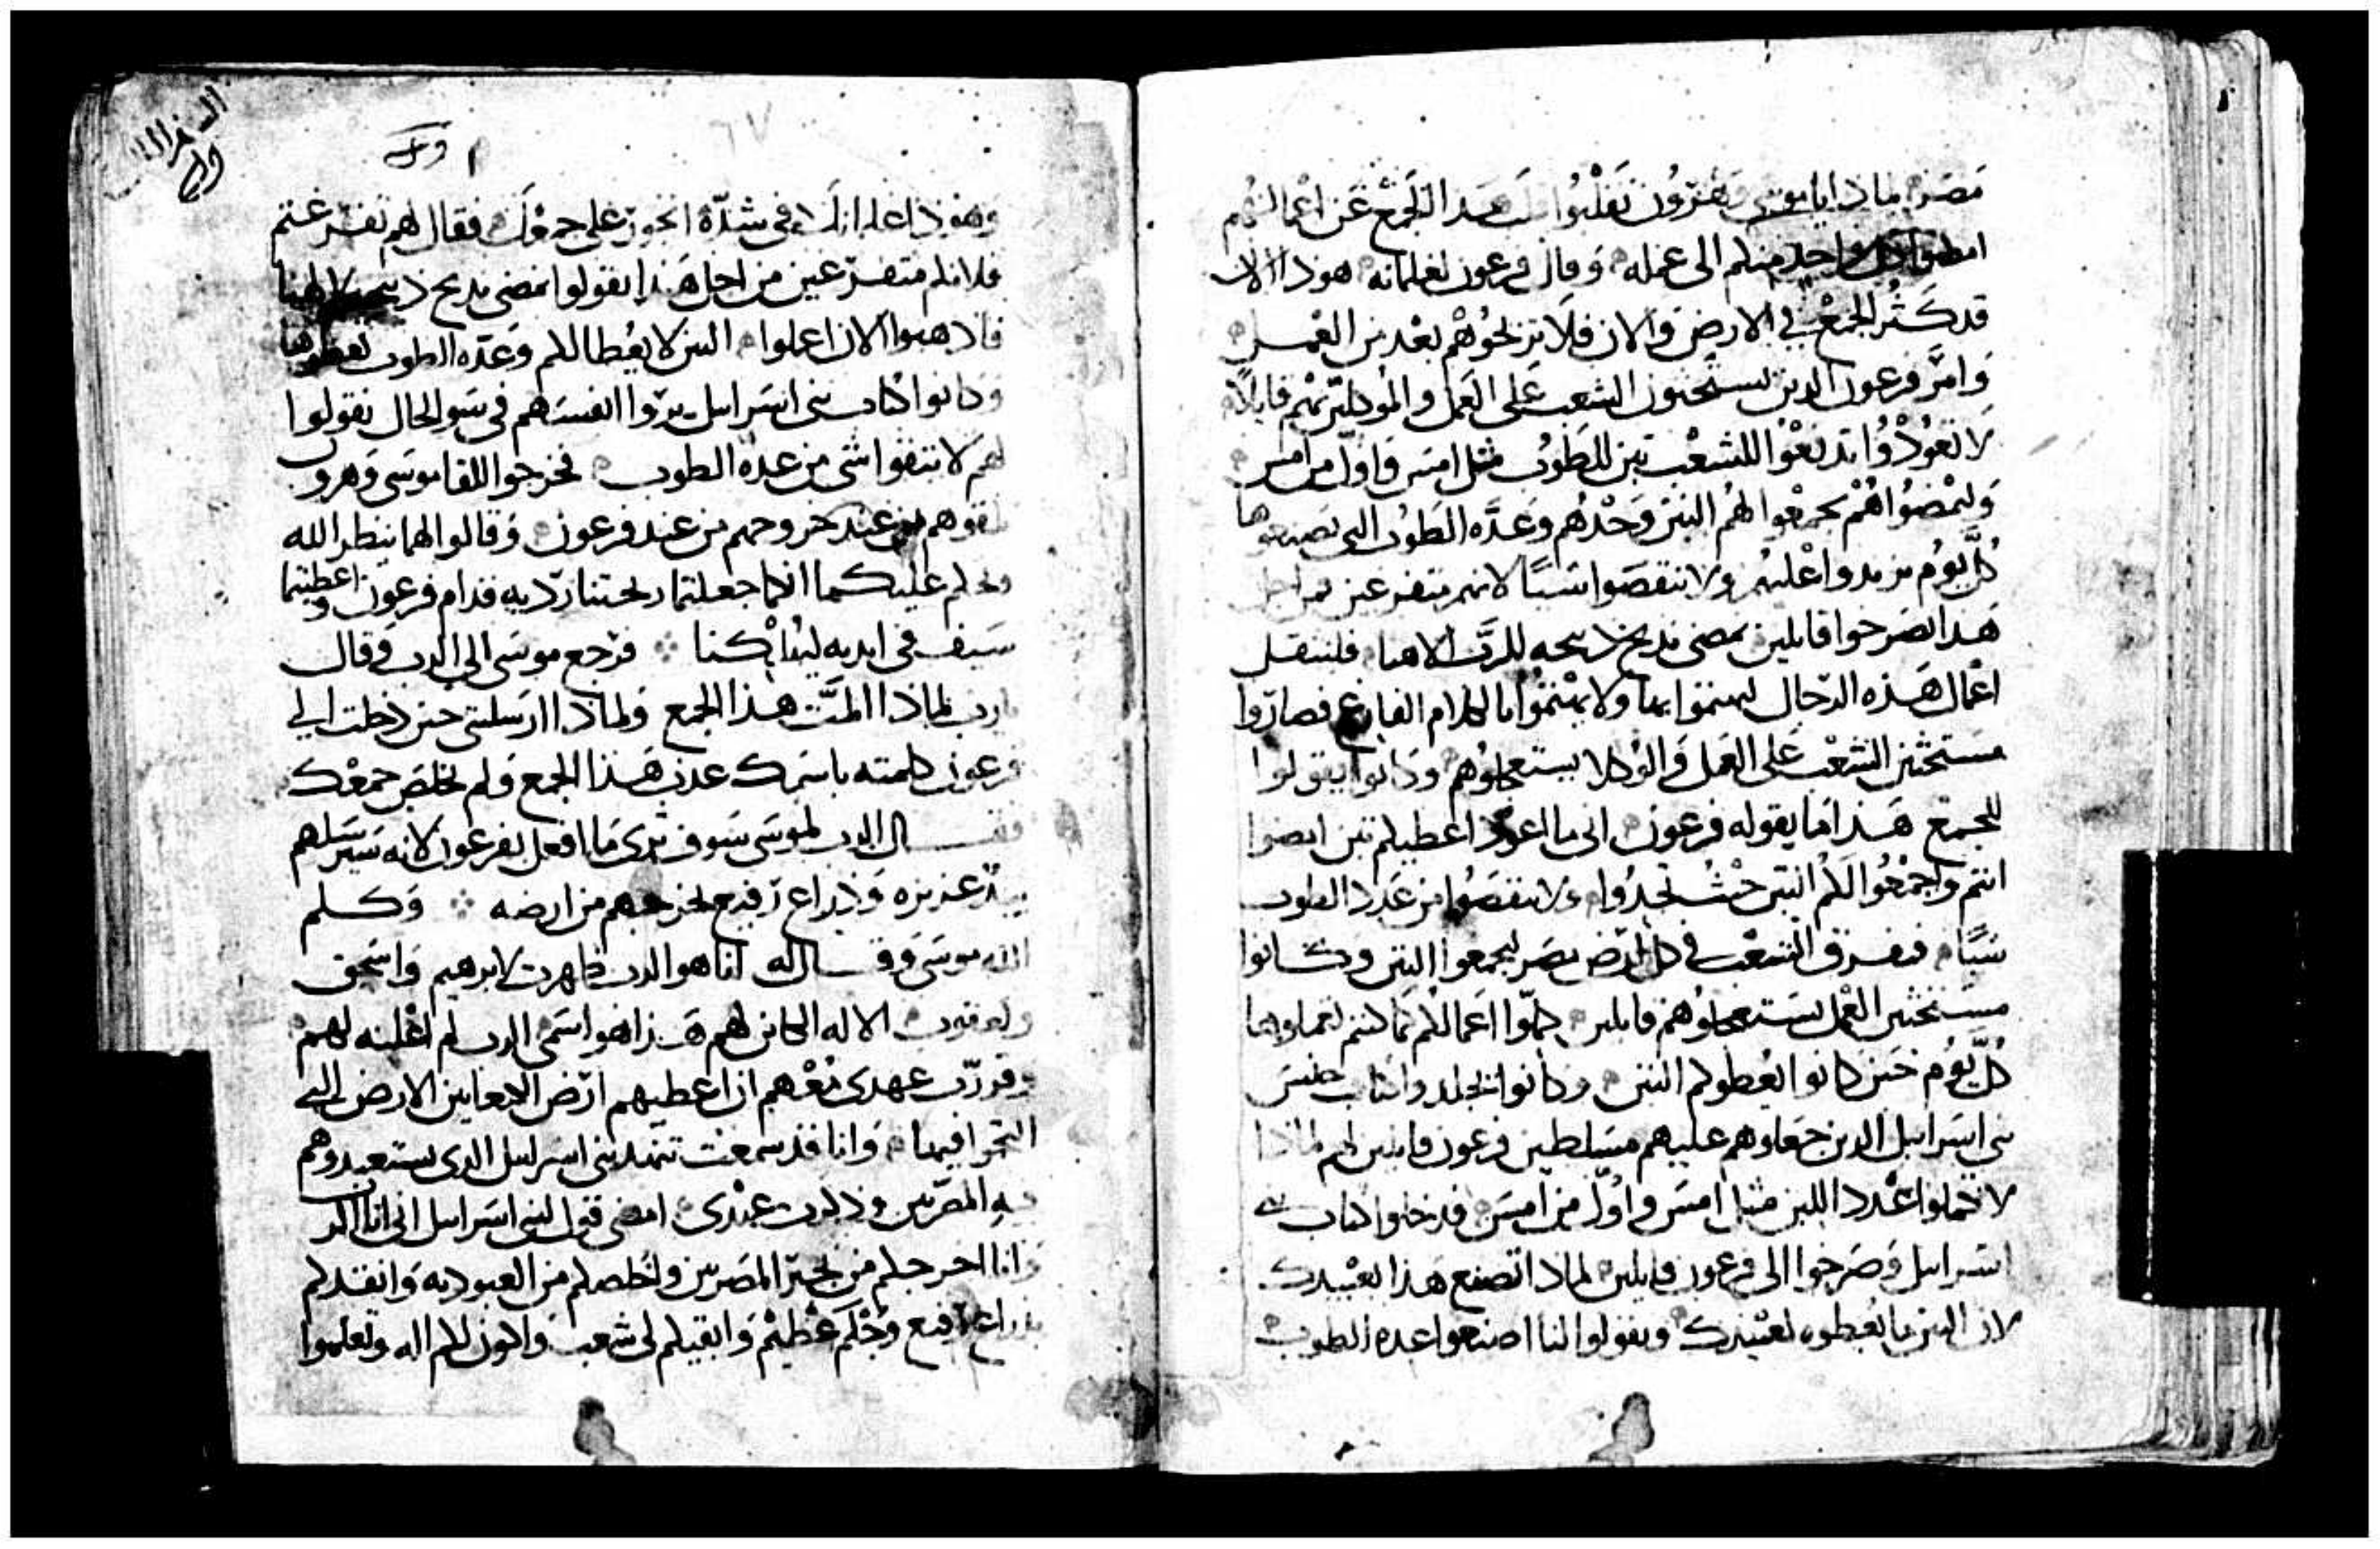 مصر لماذا يا موسى وهرون تقلبوا هذا الجمع عن اعمالهم
امضوا كل واحد منكم الى عمله وقال فرعون لغلمانه هوذا الان
قد كثر الجمع في الارض والان فلا تريحوهم بعد من العمل
وامر فرعون الذين يستحثون الشعب على العمل والموكلين بهم قايلا
لا تعودوا تدفعوا للشعب تبن للطوب مثل امس واول من امس
وليمضوا هم يجمعوا لهم التبن وحدهم وعده الطوب التي يصنعوها
كل يوم يزيدوا عليهم ولا تنقصوا شيا لانهم متفرغين من اجل
هذا صرخوا قايلين نمضي نذبح ذبيحه للرب الاهنا فلتثقل
اعمال هذه الرجال ليهتموا بها ولا يهتموا بالكلام الفارغ فصاروا
مستحثين الشعب على العمل والوكلا يستعجلوهم وكانوا يقولوا
للجمع هذا ما يقوله فرعون اني ما اعود اعطيكم تبن امضوا
انتم واجمعوا لكم التبن حيث تجدوا ولا تنقصوا من عدد الطوب
شيا فتفرق الشعب في كل ارض مصر ليجمعوا التبن وكانوا
مستحثين العمل يستعجلوهم قايلين كملوا اعمالكم كما كنتم تعملوها
كل يوم حين كانوا يعطوكم التبن وكانوا يجلدوا كتاب جنس
بني اسراييل الذين جعلوهم عليهم مسلطين فرعون قايلين لهم لماذا
لا تكملوا عدد اللبن مثل امس واول من امس فدخلوا كتاب بني
اسراييل وصرخوا الى فرعون قايلين لماذا تصنع هذا بعبيدك
لان التبن ما يعطوه لعبيدك ويقولوا لنا اصنعوا عده الطوب
السفر الثاني
وهوذا عبيدك في شده اتجوز على جمعك فقال لهم تفرغتم
فلانكم متفرغين من اجل هذا تقولوا نمضي نذبح ذبيحه لالهنا
فاذهبوا الان اعملوا التبن لا يعطا لكم وعده الطوب تعطوها
وكانوا كتاب بني اسراييل يروا انفسهم في سو الحال يقولوا
لهم لا تنقصوا شي من عده الطوب فخرجوا للقا موسى وهرون
عند خروجهم من عند فرعون وقالوا لهما ينظر الله
ويحكم عليكما انكما جعلتما ريحتنا رديه قدام فرعون واعطيتما
سيف في ايديه ليهلكنا فرجع موسى الى الرب وقال
يارب لماذا المت هذا الجمع ولماذا ارسلتني حين دخلت الى
فرعون كلمته باسمك عذب هذا الجمع ولم تخلص جمعك
فقال الرب لموسى سوف ترى ما افعل بفرعون لانه سيرسلهم
بيد عزيزه وذراع رفيع يخرجهم من ارضه وكلم
الله موسى وقال له انا هو الرب ظهرت لابرهيم واسحق
ويعقوب الاله الكاين لهم هذا هو اسمي الرب لم اعلنه لهم
وقررت عهدي معهم ان اعطيهم ارض الكنعانيين الارض التي
التجوا فيها وانا قد سمعت تنهد بني اسراييل الذي يستعبدوهم
به المصريين وذكرت عهدي امضي قول لبني اسراييل اني انا الرب
وانا اخرجكم من تجبر المصريين واخلصكم من العبوديه وانقذكم
بذراع رفيع وحكم عظيم وابقيكم لي شعب واكون لكم اله وتعلموا